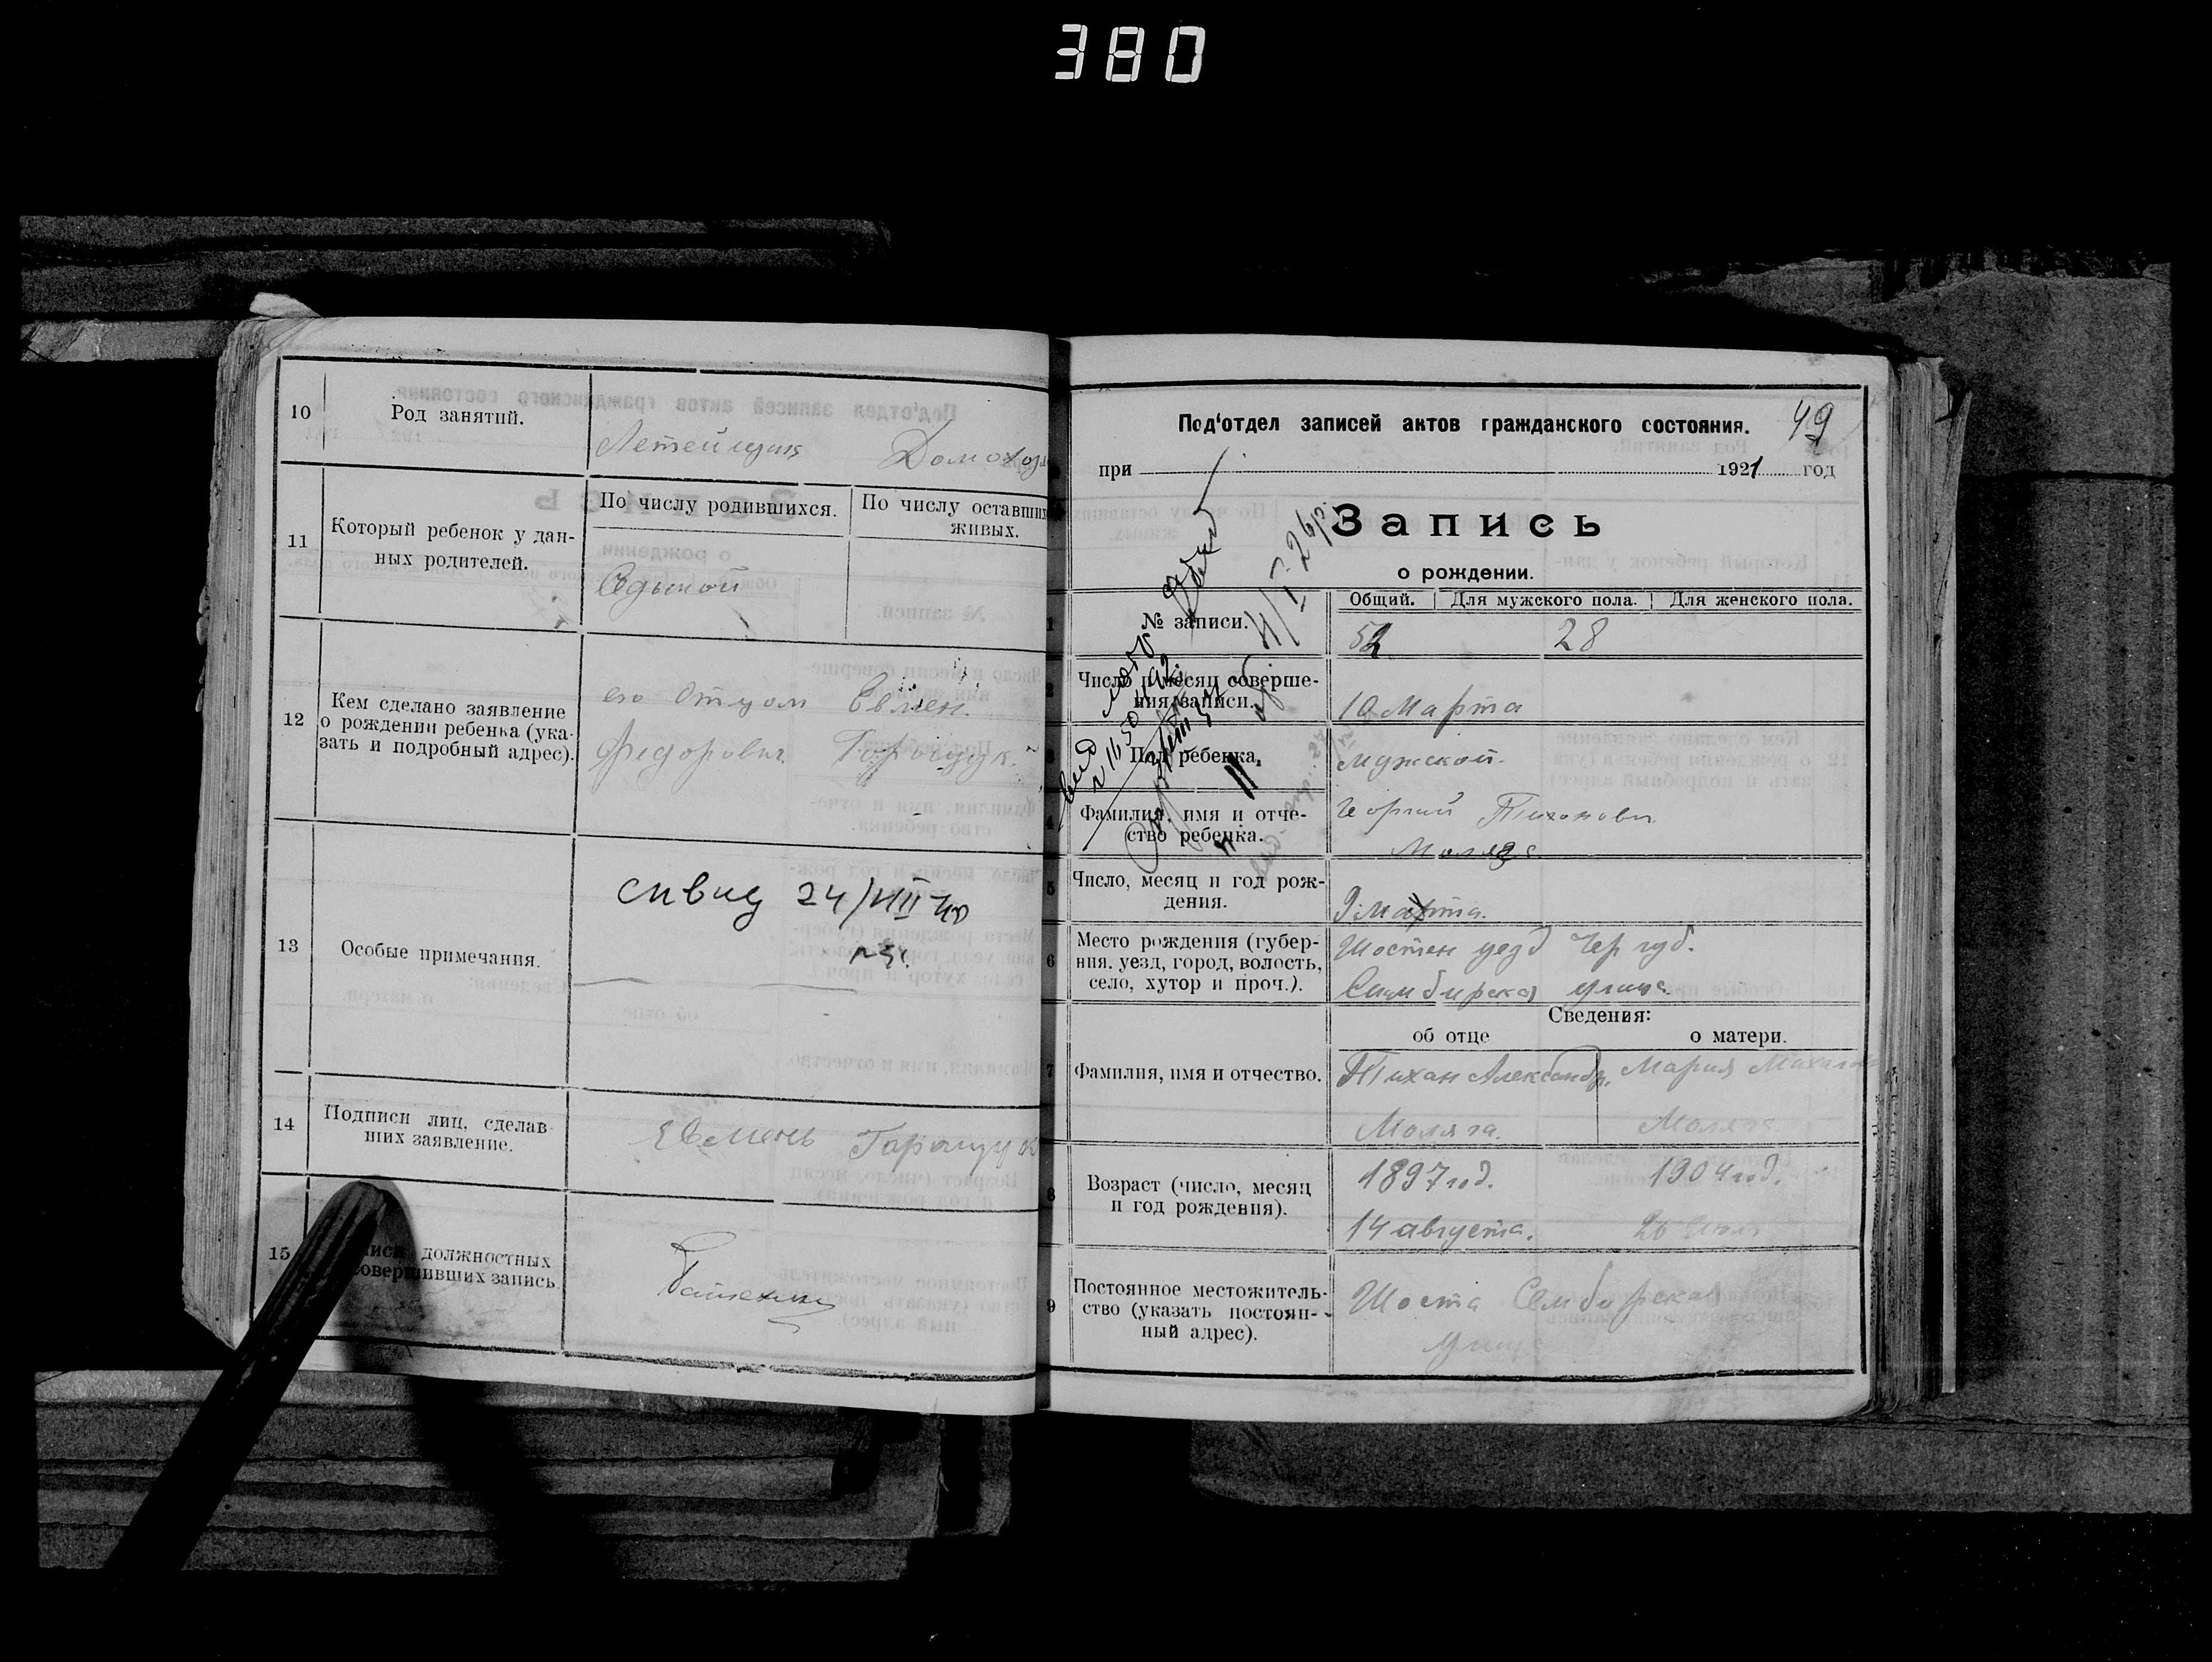 380
10
Род занятий.
Летейщик
Домохоз
11
Который ребенок у дан-
ных родителей.
По числу родившихся.
По числу оставших
живых.
12
Кем сделано заявление
о рождении ребенка (ука-
зать и подробный адрес).
его отцом Евмен.
Федорович Горощук.
13
Особые примечания.
24/VIII 40
14
Подписи лиц, сделав-
ших заявление.
Евмень Горощук
15
должностных
совершивших запись.
49
Под'отдел записей актов гражданского состояния.
при 1921 год
Запись
о рождении.
1
№ записи.
Общий. Для мужского пола. Для женского пола.
52 28
2
Число и месяц соверше-
ния записи.
10 Марта
3
Пол ребенка.
Мужской.
4
Фамилия, имя и отче-
ство ребенка.
Тихонович
Моляга
5
Число, месяц и год рож-
дения.
9 Марта.
6
Место рождения (губер-
ния, уезд, город, волость,
село, хутор и проч.).
Шостен уезд Чер губ.
Симбирска улица
Сведения:
об отце
о матери.
7
Фамилия, имя и отчество.
Тихан Александр.
Моляга.
Мария
Моляга
8
Возраст (число, месяц
и год рождения).
1897 год.
14 августа.
1904 год.
9
Постоянное местожитель-
ство (указать постоян-
ный адрес).
Шоста Семберская
улица